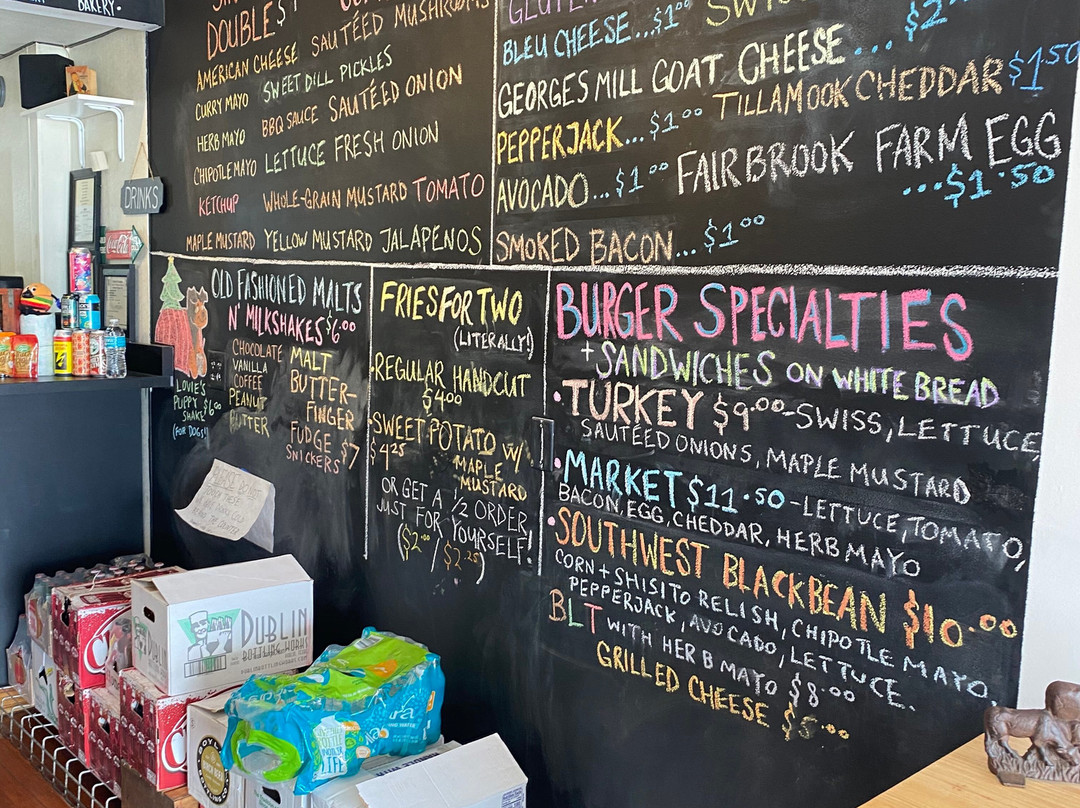 BAKERY.
DOUBLE $1
AMERICAN CHEESE SAUTÉED MUSHROOMS
CURRY MAYO SWEET DILL PICKLES
HERB MAYO BBQ SAUCE SAUTÉED ONION
CHIPOTLE MAYO LETTUCE FRESH ONION
KETCHUP WHOLE-GRAIN MUSTARD TOMATO
MAPLE MUSTARD YELLOW MUSTARD JALAPENOS
BLEU CHEESE...$1.00 SWISS
GEORGES MILL GOAT CHEESE...$2.00
PEPPERJACK...$1.00 TILLAMOOK CHEDDAR $1.50
AVOCADO...$1.00 FAIRBROOK FARM EGG
...$1.50
SMOKED BACON...$1.00
DRINKS
Coca-Cola
OLD FASHIONED MALTS
N' MILKSHAKES $6.00
CHOCOLATE
VANILLA
COFFEE
PEANUT
BUTTER
MALT
BUTTER-
FINGER
FUDGE $7
SNICKERS
LOVIE'S
PUPPY $6.00
SHAKE
(FOR DOGS!)
FRIES FOR TWO
(LITERALLY!)
•REGULAR HANDCUT
$4.00
•SWEET POTATO W/
$4.25 MAPLE
MUSTARD
OR GET A 1/2 ORDER
JUST FOR YOURSELF!
($2.00/$2.25)
BURGER SPECIALTIES
+ SANDWICHES ON WHITE BREAD
•TURKEY $9.00-SWISS, LETTUCE
SAUTÉED ONIONS, MAPLE MUSTARD
•MARKET $11.50-LETTUCE, TOMATO,
BACON, EGG, CHEDDAR, HERB MAYO
•SOUTHWEST BLACKBEAN $10.00
CORN + SHISITO RELISH, CHIPOTLE MAYO,
PEPPERJACK, AVOCADO, LETTUCE.
BLT WITH HERB MAYO $8.00
GRILLED CHEESE $5.00
DUBLIN
BOTTLING WORKS